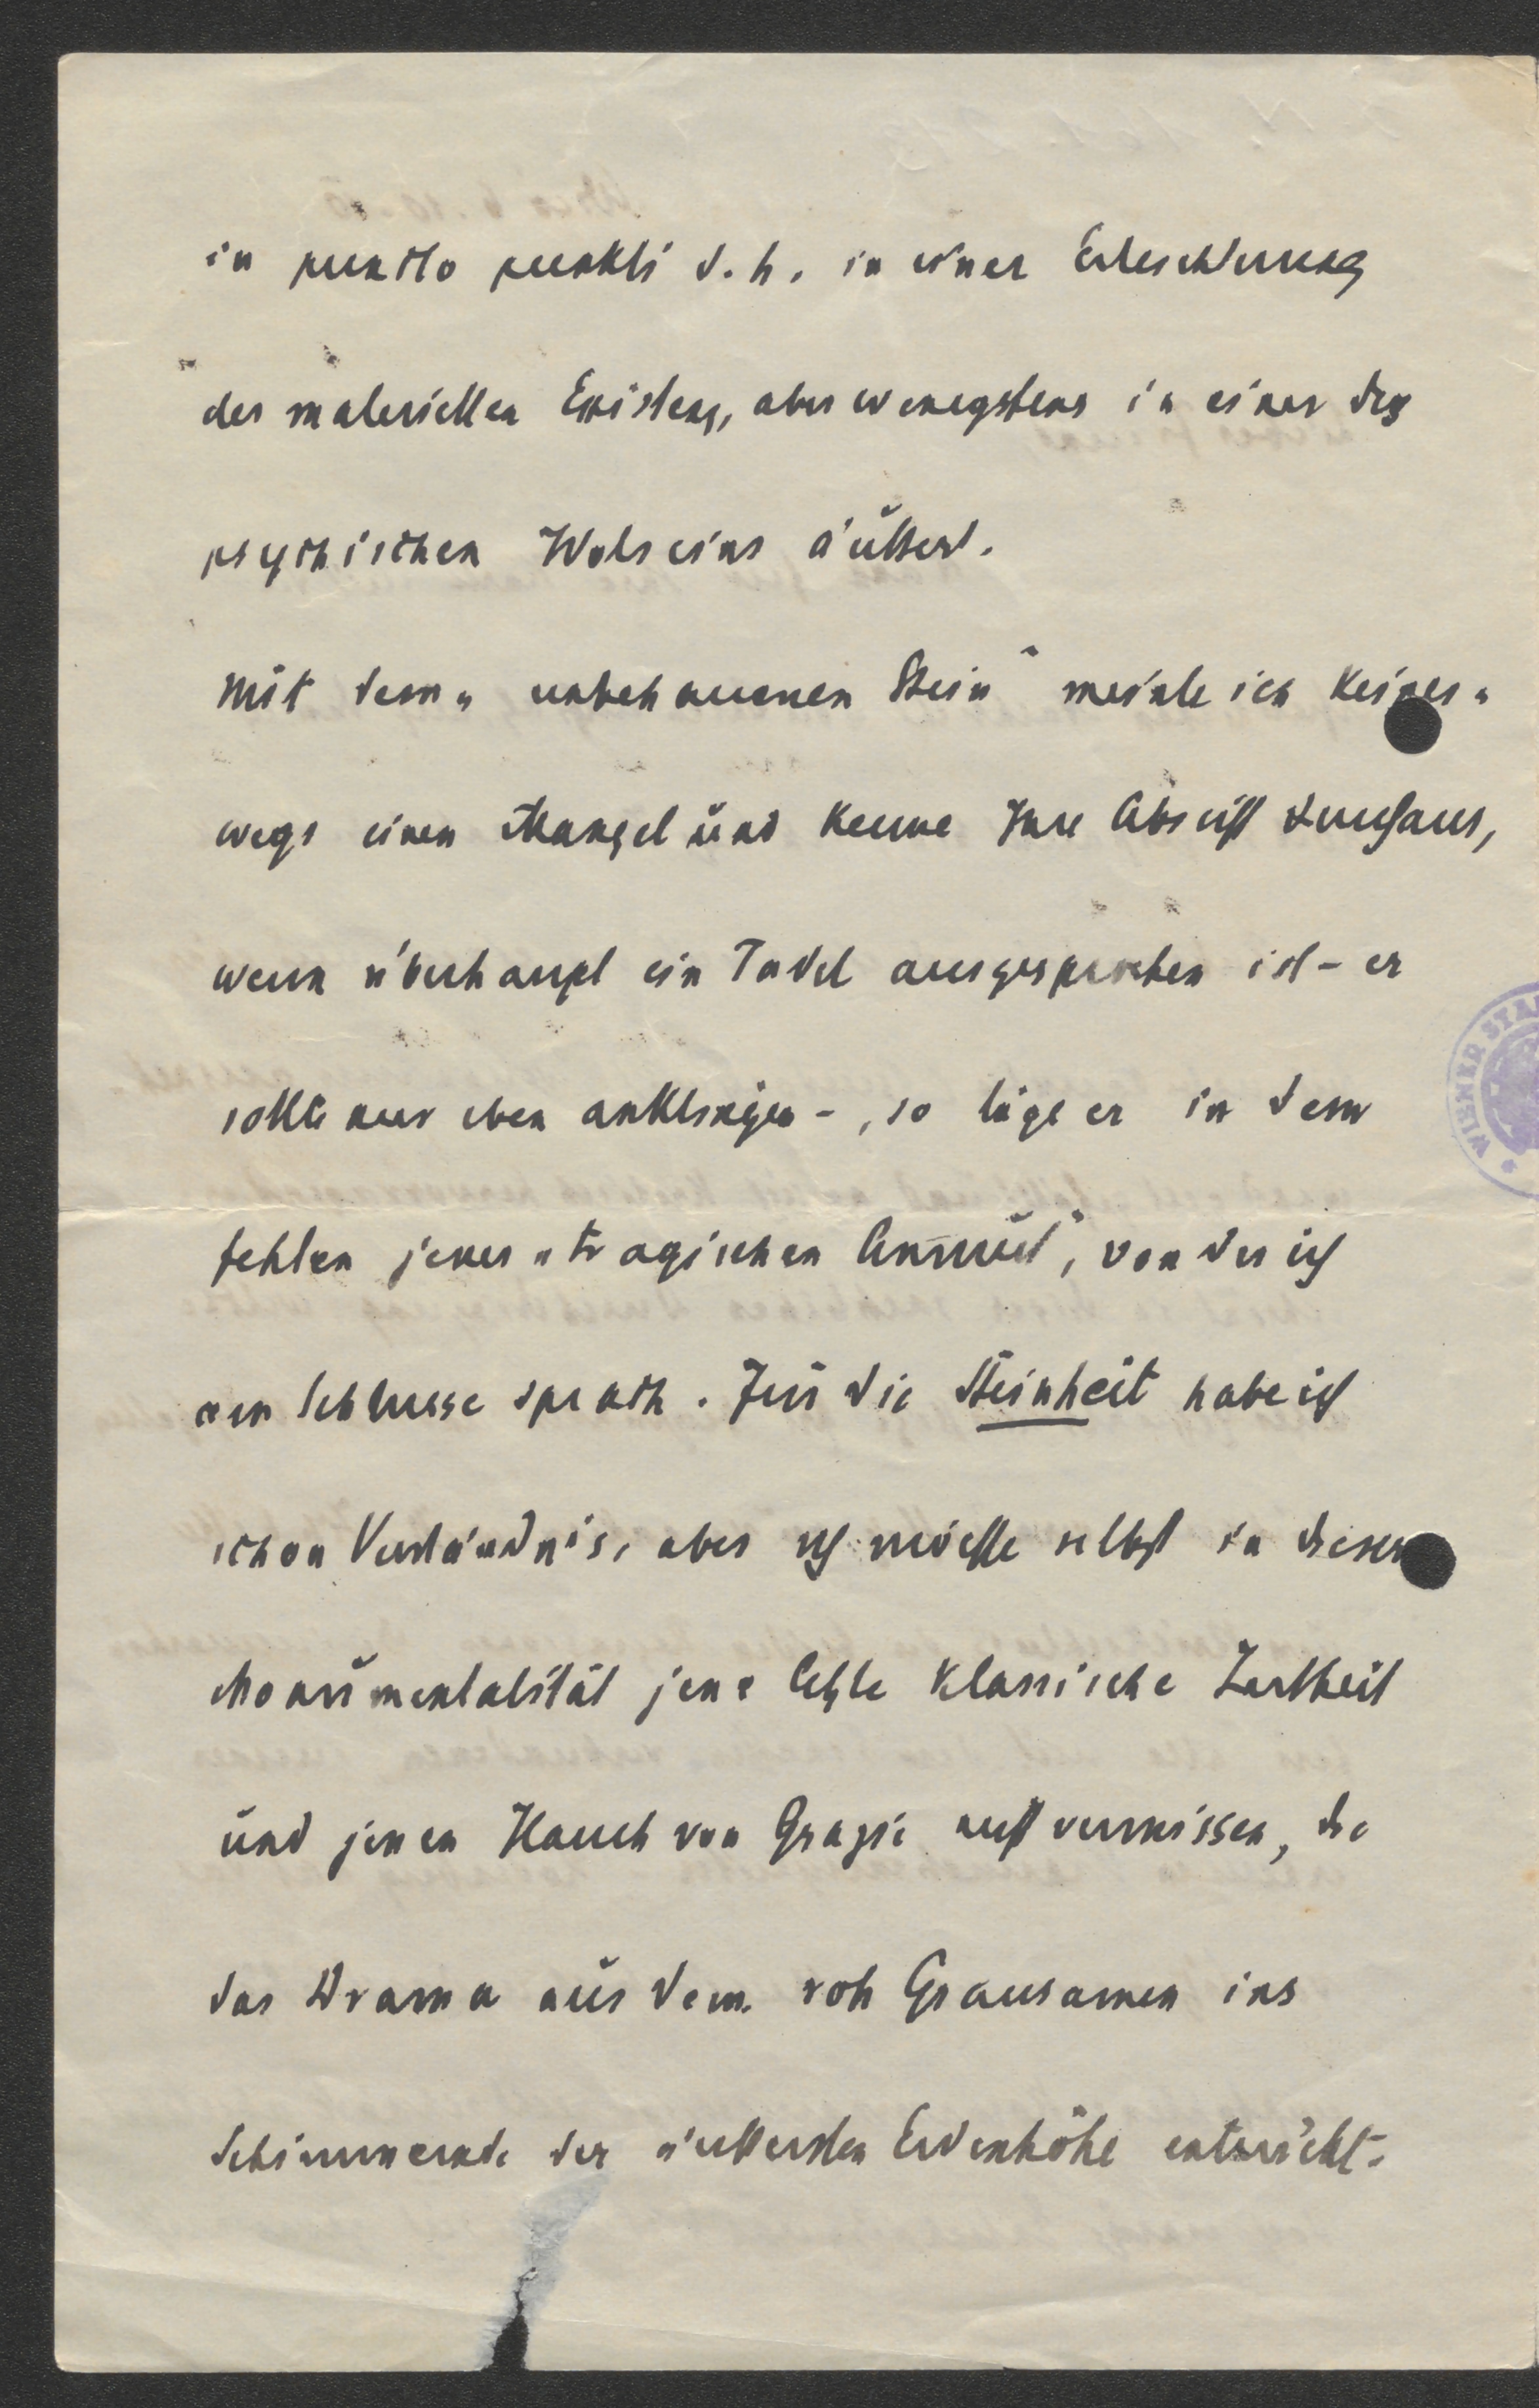 in puncto punkti d. h. in einer Erleichterung
der materiellen Existenz, aber wenigstens in einer des
psychischen Wolseins äußert.
Mit dem „unbehauenen Stein" meinte ich keines-
wegs einen Mangel und kenne Ihre Absicht durchaus,
wenn überhaupt ein Tadel ausgesprochen ist - er
sollte nur eben anklingen -, so läge er in dem
fehlen jener „tragischen Anmut", von der ich
am Schlusse sprach. Für die Steinheit habe ich
schon Verständnis, aber ich möchte selbst in dieser
Monumentalität jene letzte klassische Zartheit
und jenen Hauch von Grazie nicht vermissen, die
das Drama aus dem roh Grausamen ins
Schimmernde der äußersten Erdenhöhe entrückt.
WIENER STA